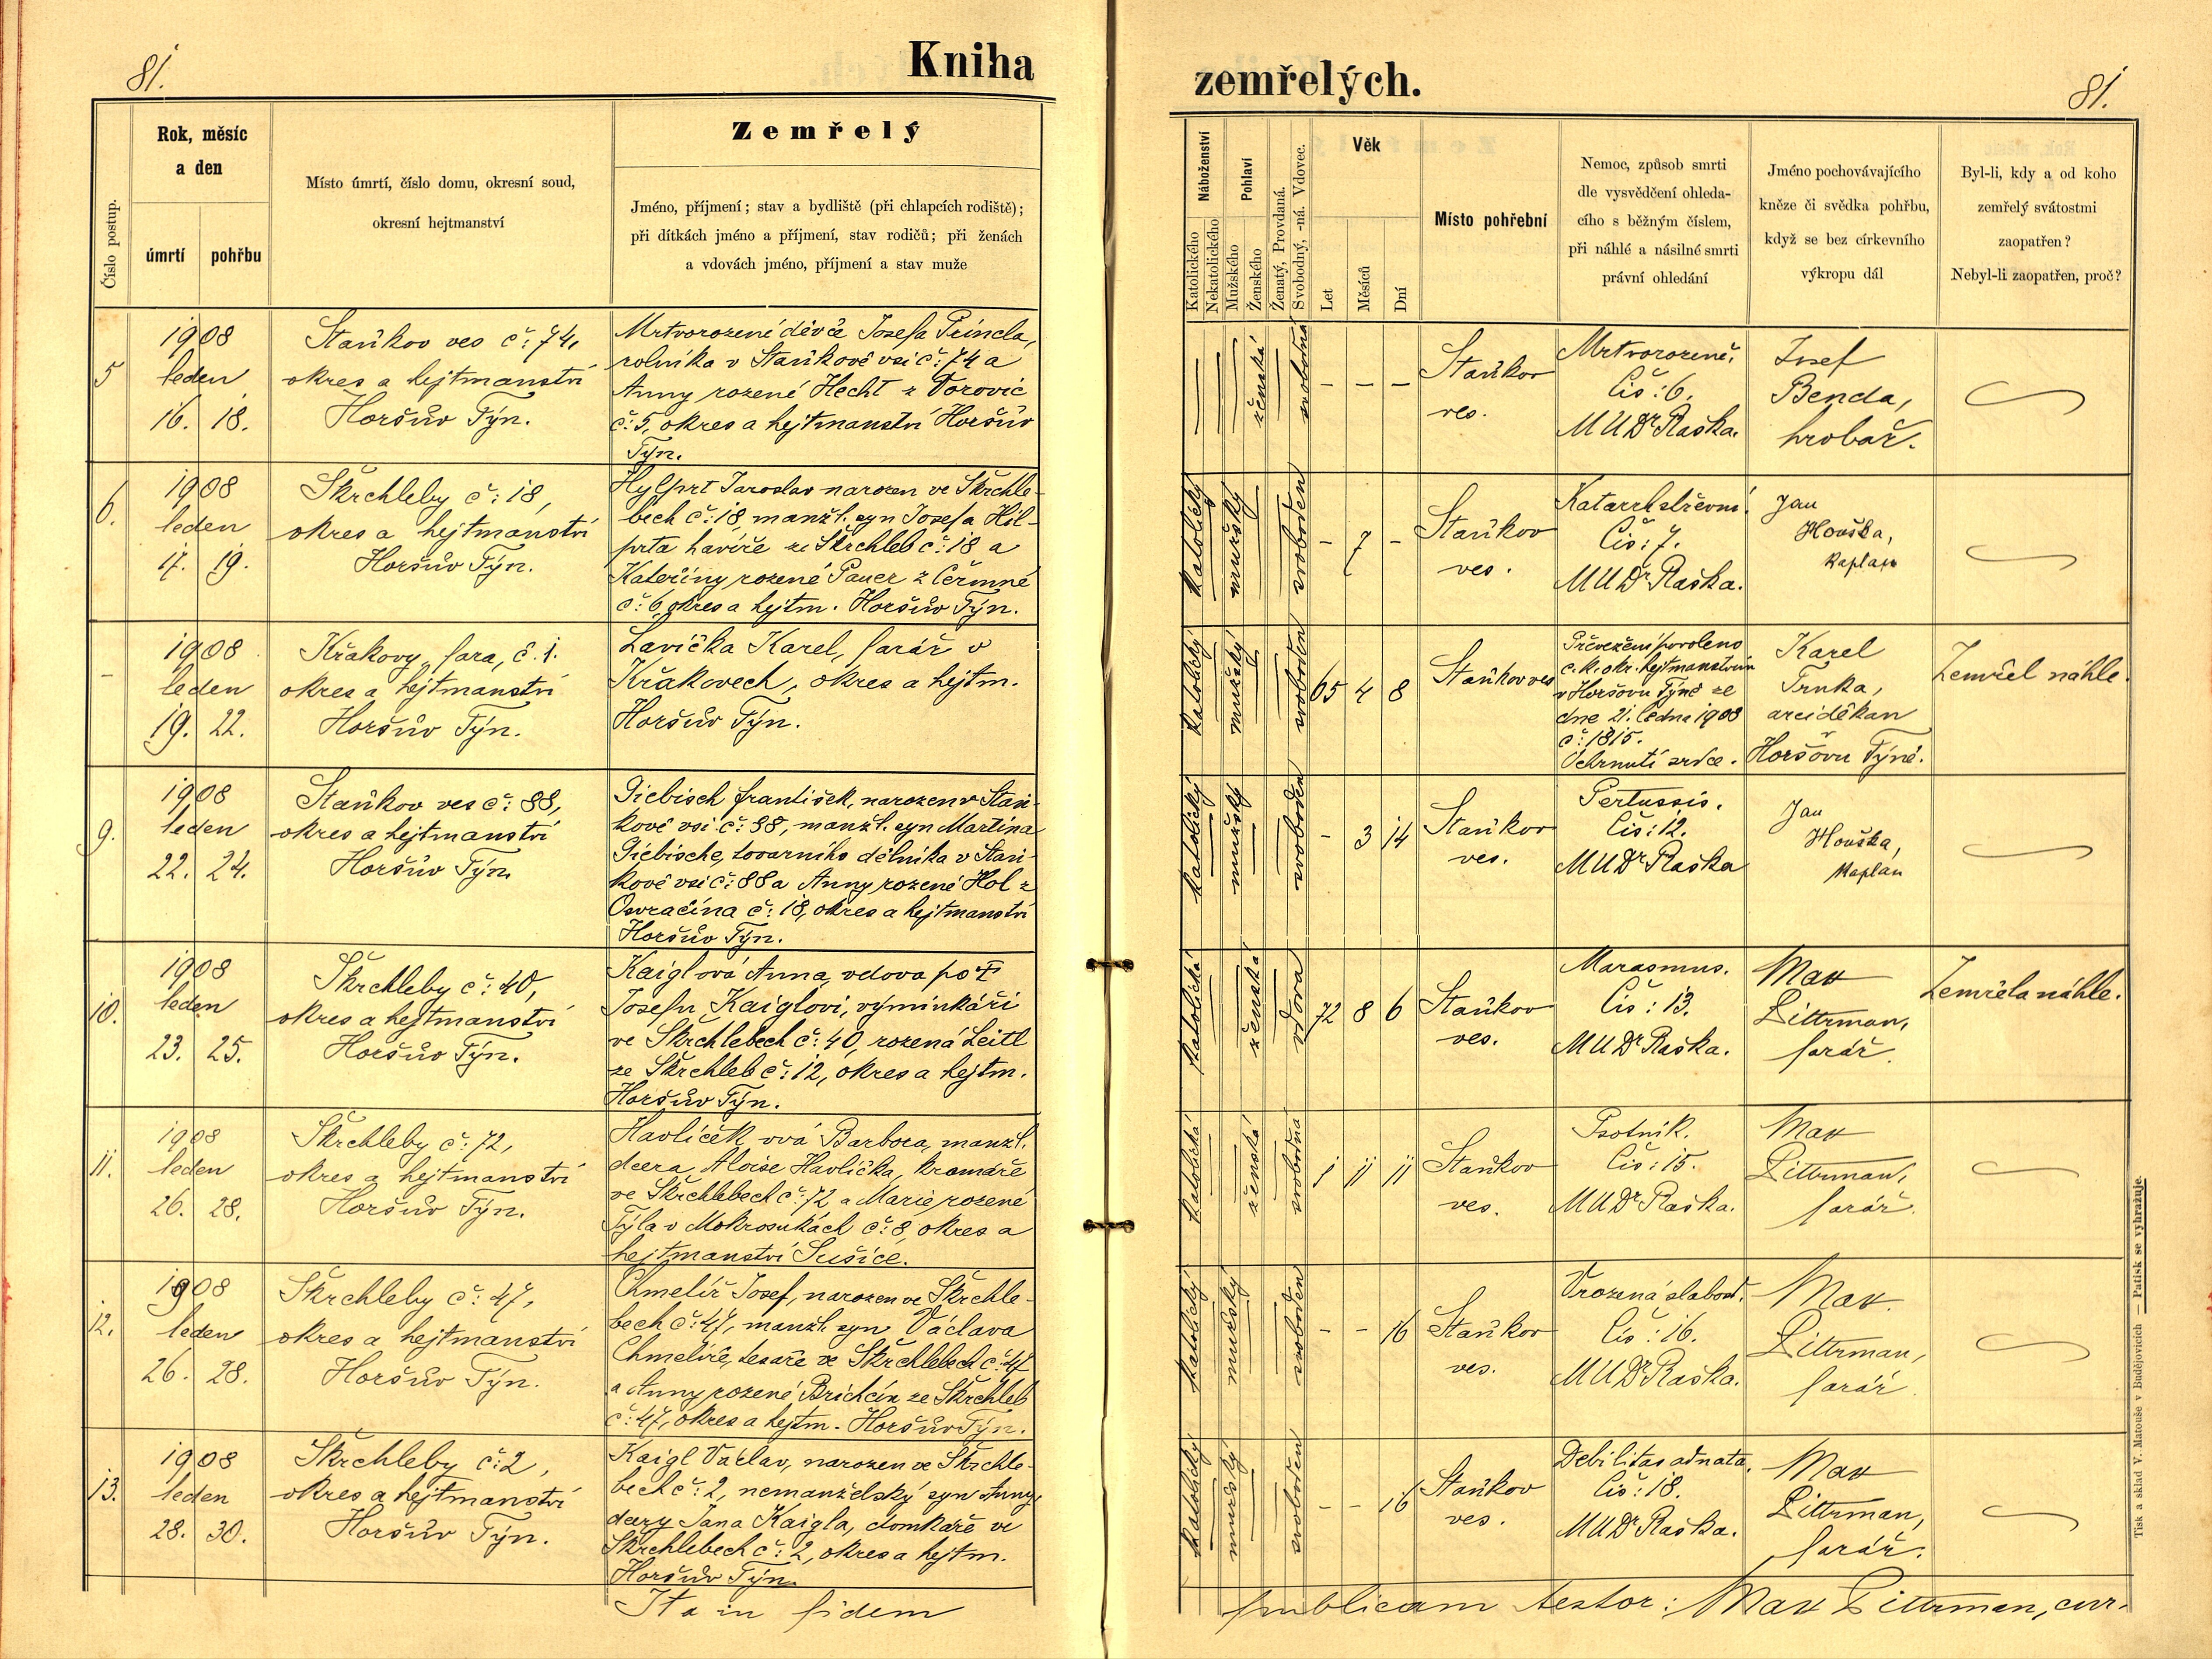 81.
Kniha
zemřelých.
81.
Číslo postup.
Rok, měsíc
a den
úmrtí
pohřbu
Místo úmrtí, číslo domu, okresní soud,
okresní hejtmanství
Zemřelý
Jméno, příjmení; stav a bydliště (při chlapcích rodiště);
při dítkách jméno a příjmení, stav rodičů; při ženách
a vdovách jméno, příjmení a stav muže
Náboženství
Katolického
Nekatolického
Pohlaví
Mužského
Ženského
Ženatý, Provdaná.
Svobodný, -ná. Vdovec.
Věk
Let
Měsíců
Dní
Místo pohřební
Nemoc, způsob smrti
dle vysvědčení ohleda-
cího s běžným číslem,
při náhlé a násilné smrti
právní ohledání
Jméno pochovávajícího
kněze či svědka pohřbu,
když se bez církevního
výkropu dál
Byl-li, kdy a od koho
zemřelý svátostmi
zaopatřen?
Nebyl-li zaopatřen, proč?
5
1908
leden
16. 18.
Staňkov ves č: 74,
okres a hejtmanství
Horšův Týn.
Mrtvorozené děvče Josefa Princla,
rolníka v Staňkově vsi č: 74 a
Anny rozené Hecht z Vorovic
č: 5, okres a hejtmanství Horšův
Týn.
ženská
svobodná
– – –
Staňkov
ves.
Mrtvorozené.
Čís: 6.
MUDr Raška.
Josef
Benda,
hrobař.
6.
1908
leden
17. 19.
Škrchleby č: 18,
okres a hejtmanství
Horšův Týn.
Hylprt Jaroslav narozen ve Škrchle-
bech č: 18, manžl. syn Josefa Hil-
prta havíře ze Škrchleb č: 18 a
Kateřiny rozené Pauer z Čermné
č: 6, okres a hejtm. Horšův Týn.
katolický
mužský
svoboden
– 7 –
Staňkov
ves.
Katarrh střevní.
Čís: 7.
MUDr Raška.
Jan
Houška,
kaplan
–
1908
leden
19. 22.
Křakovy, fara, č. 1.
okres a hejtmanství
Horšův Týn.
Lavička Karel, farář v
Křakovech, okres a hejtm.
Horšův Týn.
katolický
mužský
svoboden
65 4 8
Staňkov ves
Převezení povoleno
c. k. okr. hejtmanstvím
v Horšovu Týně ze
dne 21. ledna 1908
č: 1815.
Ochrnutí srdce.
Karel
Trnka,
arciděkan
Horšovu Týně.
Zemřel náhle.
9.
1908
leden
22. 24.
Staňkov ves č: 88,
okres a hejtmanství
Horšův Týn.
Giebisch František, narozen v Staň-
kově vsi č: 88, manžl. syn Martina
Giebische, továrního dělníka v Staň-
kově vsi č: 88 a Anny rozené Hol z
Osvračína č: 18, okres a hejtmanství
Horšův Týn.
katolický
mužský
svoboden
– 3 14
Staňkov
ves.
Pertussis.
Čís: 12.
MUDr Raška
Jan
Houška,
kaplan
10.
1908
leden
23. 25.
Škrchleby č: 40,
okres a hejtmanství
Horšův Týn.
Kaiglová Anna, vdova po †
Josefu Kaiglovi, výminkáři
ve Škrchlebech č: 40, rozená Leitl
ze Škrchleb č: 12, okres a hejtm.
Horšův Týn.
katolická
ženská
vdova
72 8 6
Staňkov
ves.
Marasmus.
Čís: 13.
MUDr Raška.
Max
Littrman,
farář.
Zemřela náhle.
11.
1908
leden
26. 28.
Škrchleby č: 72,
okres a hejtmanství
Horšův Týn.
Havlíčková Barbora, manžl.
dcera Aloise Havlíčka, kramáře
ve Škrchlebech č: 72 a Marie rozené
Týla v Mokrosukách č: 8, okres a
hejtmanství Sušice.
katolická
ženská
svobodná
1 11 11
Staňkov
ves.
Psotník.
Čís: 15.
MUDr Raška.
Max
Littrman,
farář.
12.
1908
leden
26. 28.
Škrchleby č: 47,
okres a hejtmanství
Horšův Týn.
Chmelíř Josef, narozen ve Škrchle-
bech č: 47, manžl. syn Václava
Chmelíře, tesaře ve Škrchlebech č: 47
a Anny rozené Brichcín ze Škrchleb
č: 47, okres a hejtm. Horšův Týn.
katolický
mužský
svoboden
– – 16
Staňkov
ves.
Vrozená slabost.
Čís: 16.
MUDr Raška.
Max.
Littrman,
farář
13.
1908
leden
28. 30.
Škrchleby č: 2,
okres a hejtmanství
Horšův Týn.
Kaigl Václav, narozen ve Škrchle-
bech č: 2, nemanželský syn Anny
dcery Jana Kaigla, domkaře ve
Škrchlebech č: 2, okres a hejtm.
Horšův Týn.
katolický
mužský
svoboden
– – 16
Staňkov
ves.
Debilitas adnata.
Čís: 18.
MUDr Raška.
Max
Littrman,
farář.
Ita in fidem
publicam testor: Max Littrman, cur.
Tisk a sklad V. Matouše v Budějovicích — Patisk se vyhražuje.